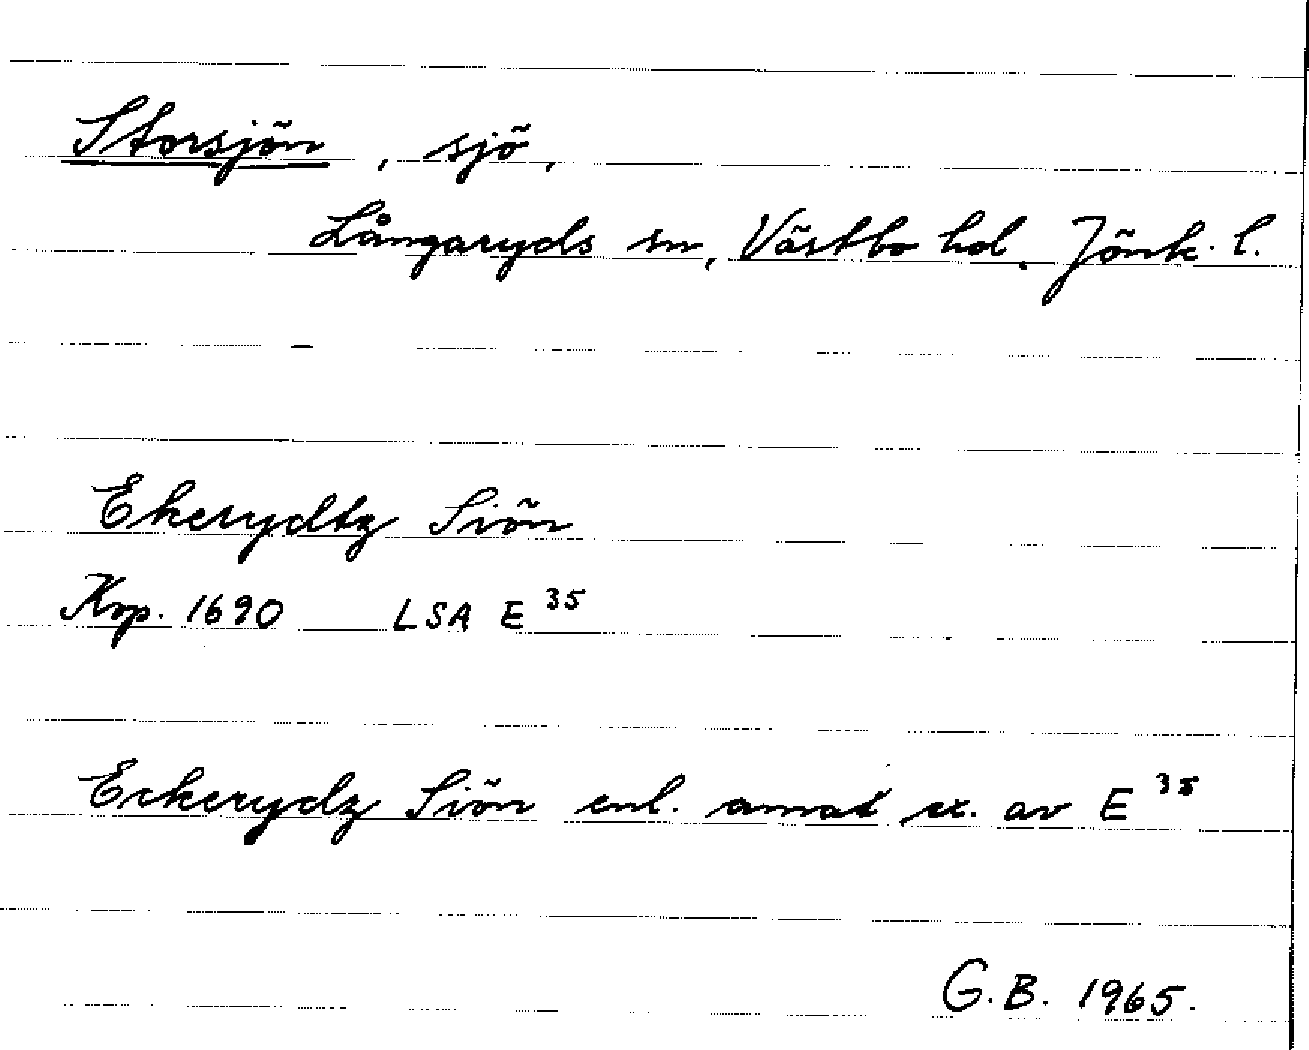 Storsjön, sjö,
Långaryds sn, Västbo hd. Jönk. l.
Ekerydtz Siön
Kop. 1690 LSA E 35
Eckerydz Siön enl. annat ex. av E 35
G.B. 1965.